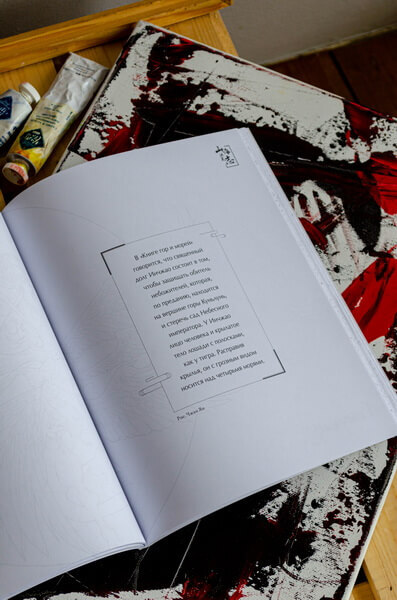 В «Книге гор и морей»
говорится, что священный
долг Инчжао состоит в том,
чтобы защищать обитель
небожителей, которая,
по преданию, находится
на вершине горы Куньлунь,
и стеречь сад Небесного
императора. У Инчжао
лицо человека и крылатое
тело лошади с полосками,
как у тигра. Расправив
крылья, он с грозным видом
носится над четырьмя морями.
Рис. Чжао Яо